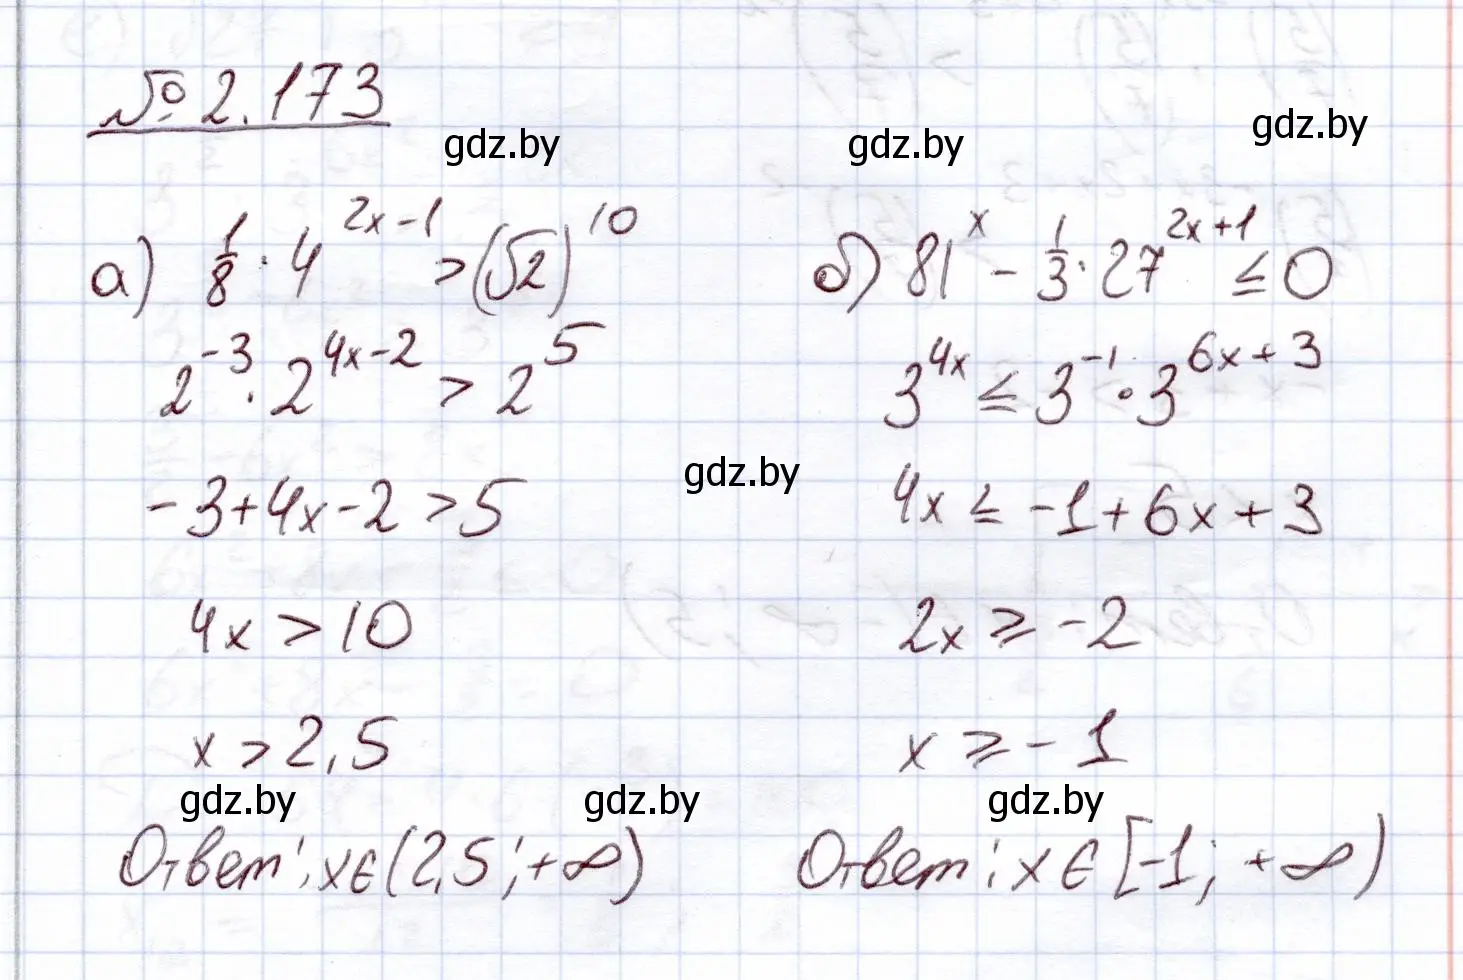 № 2.173
gdz.by gdz.by gdz.by
а) 1/8 · 4^(2x-1) > (√2)^10
2^(-3) · 2^(4x-2) > 2^5
-3+4x-2>5
4x > 10
x > 2,5
Ответ: x∈(2,5;+∞)
б) 81^x - 1/3 · 27^(2x+1) ≤ 0
3^(4x) ≤ 3^(-1) · 3^(6x+3)
4x ≤ -1+6x+3
2x ⩾ -2
x ⩾ -1
Ответ: x∈[-1; +∞)
gdz.by
gdz.by gdz.by gdz.by